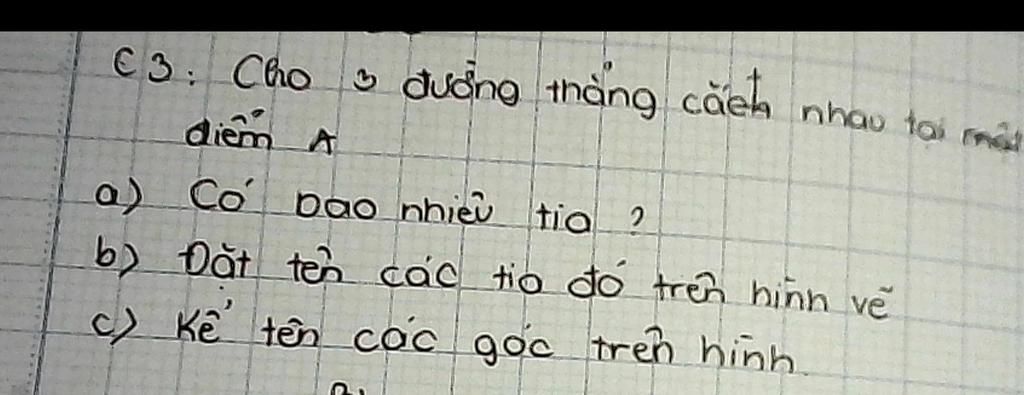 C3: Cho 3 đường thẳng cắt nhau tại một
điểm A
a) Có bao nhiêu tia ?
b) Đặt tên các tia đó trên hình vẽ
c) Kể tên các góc trên hình